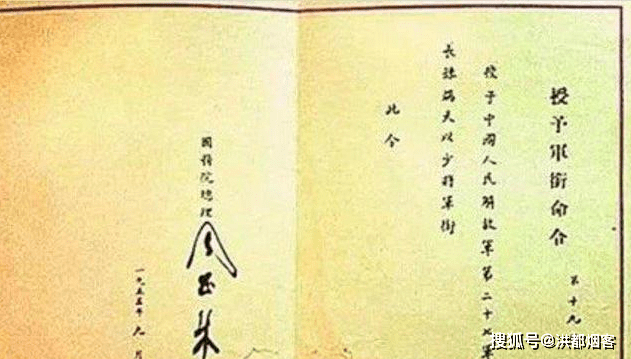 授予軍銜命令
第十九
授予中國人民解放軍第二十七軍
長孫端夫以少將軍銜
此令
國務院總理
周恩來
一九五五年九月
搜狐号@洪都烟客